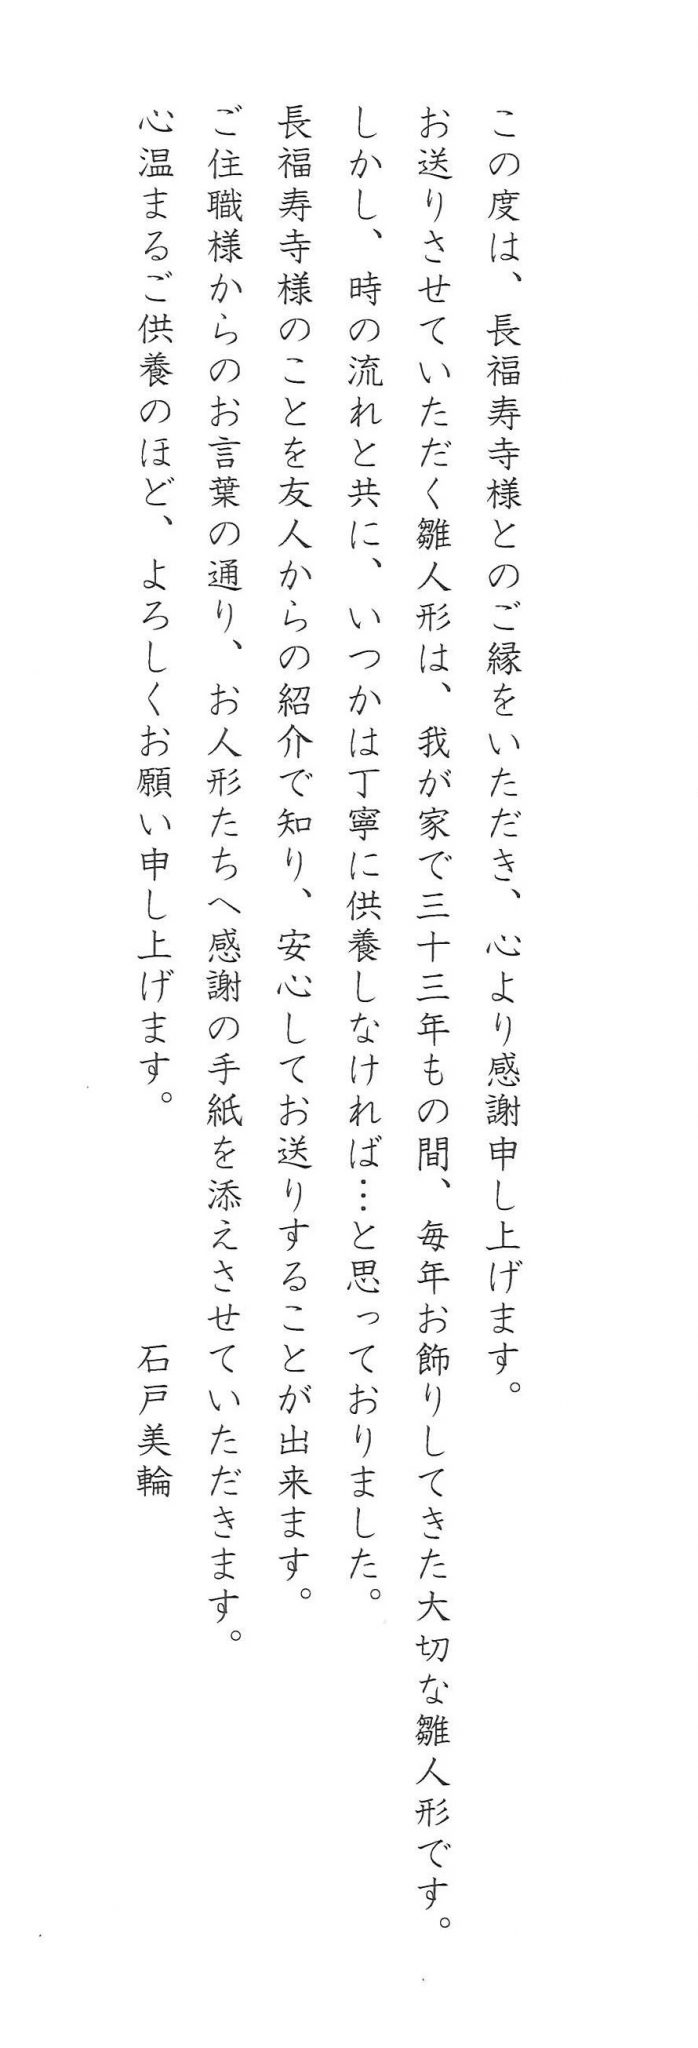 この度は、長福寿寺様とのご縁をいただき、心より感謝申し上げます。
お送りさせていただく雛人形は、我が家で三十三年もの間、毎年お飾りしてきた大切な雛人形です。
しかし、時の流れと共に、いつかは丁寧に供養しなければ…と思っておりました。
長福寿寺様のことを友人からの紹介で知り、安心してお送りすることが出来ます。
ご住職様からのお言葉の通り、お人形たちへ感謝の手紙を添えさせていただきます。
心温まるご供養のほど、よろしくお願い申し上げます。　石戸美輪